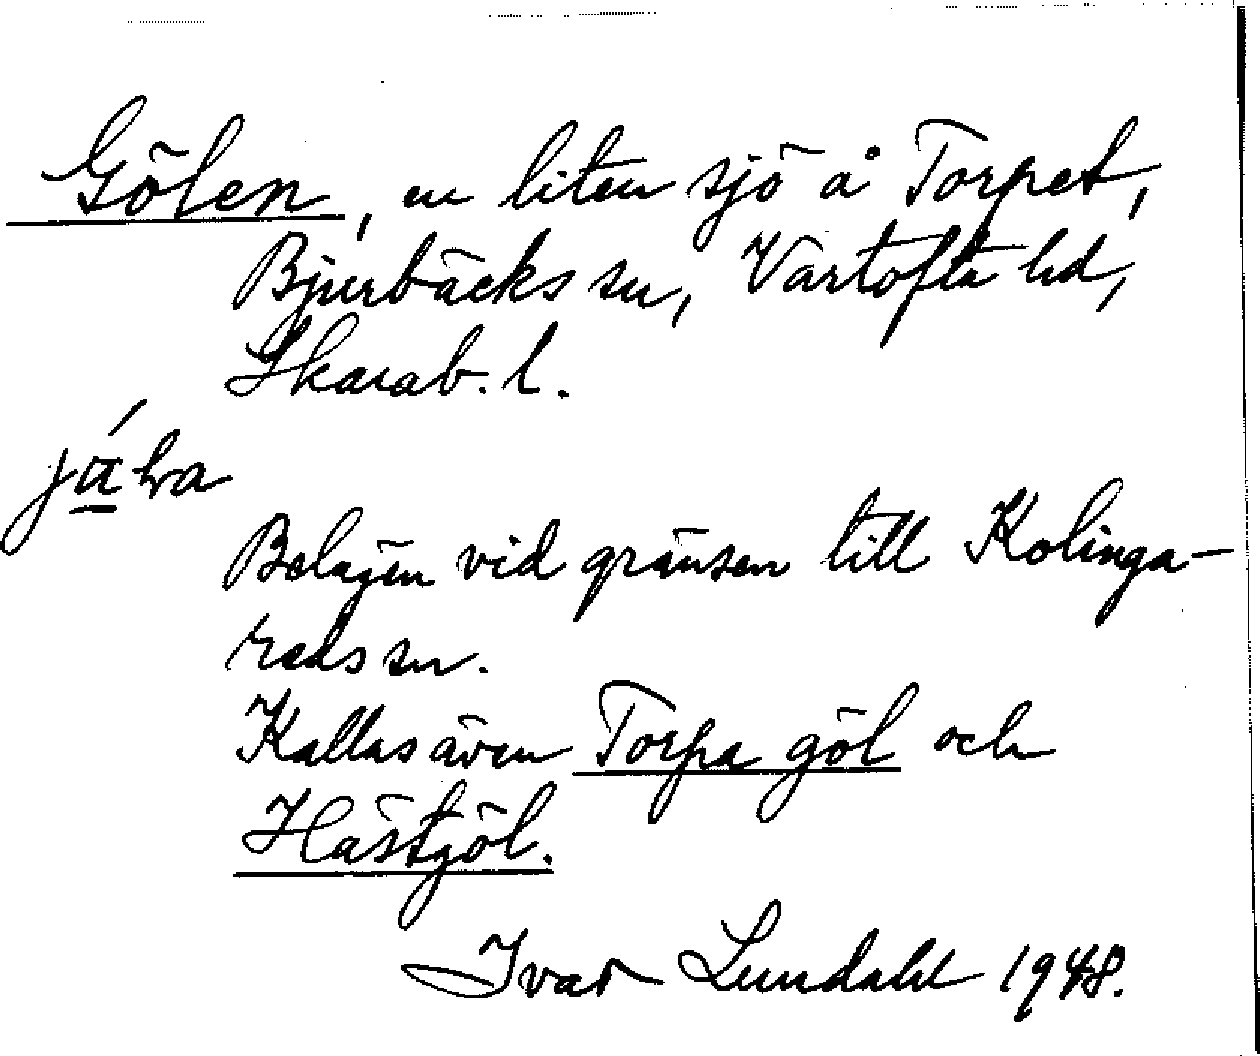 Gölen, en liten sjö å Torpet,
Bjurbäcks sn, Vartofta hd,
Skarab. l.
Belägen vid gränsen till Kolinga-
reds sn.
Kallas även Torpa göl och
Hästgöl.
Ivar Lundahl 1948.